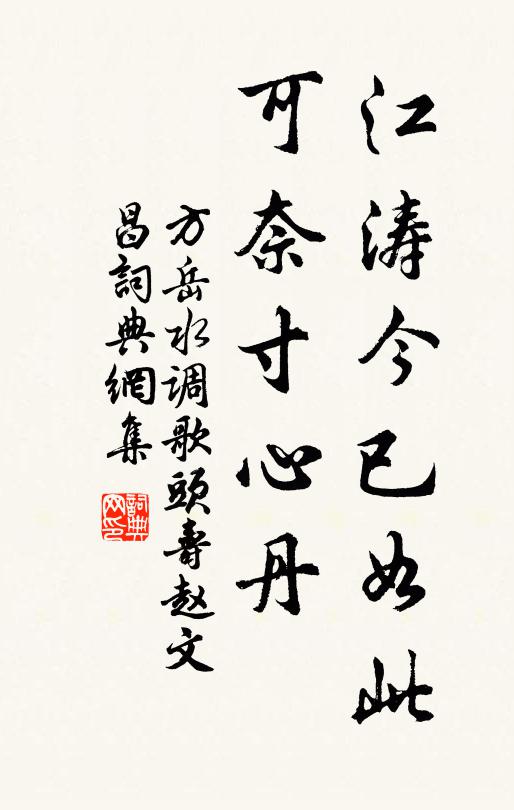 江涛今已如此
可奈寸心丹
方岳水调歌頭壽赵文
昌詞典網集
詞典網印